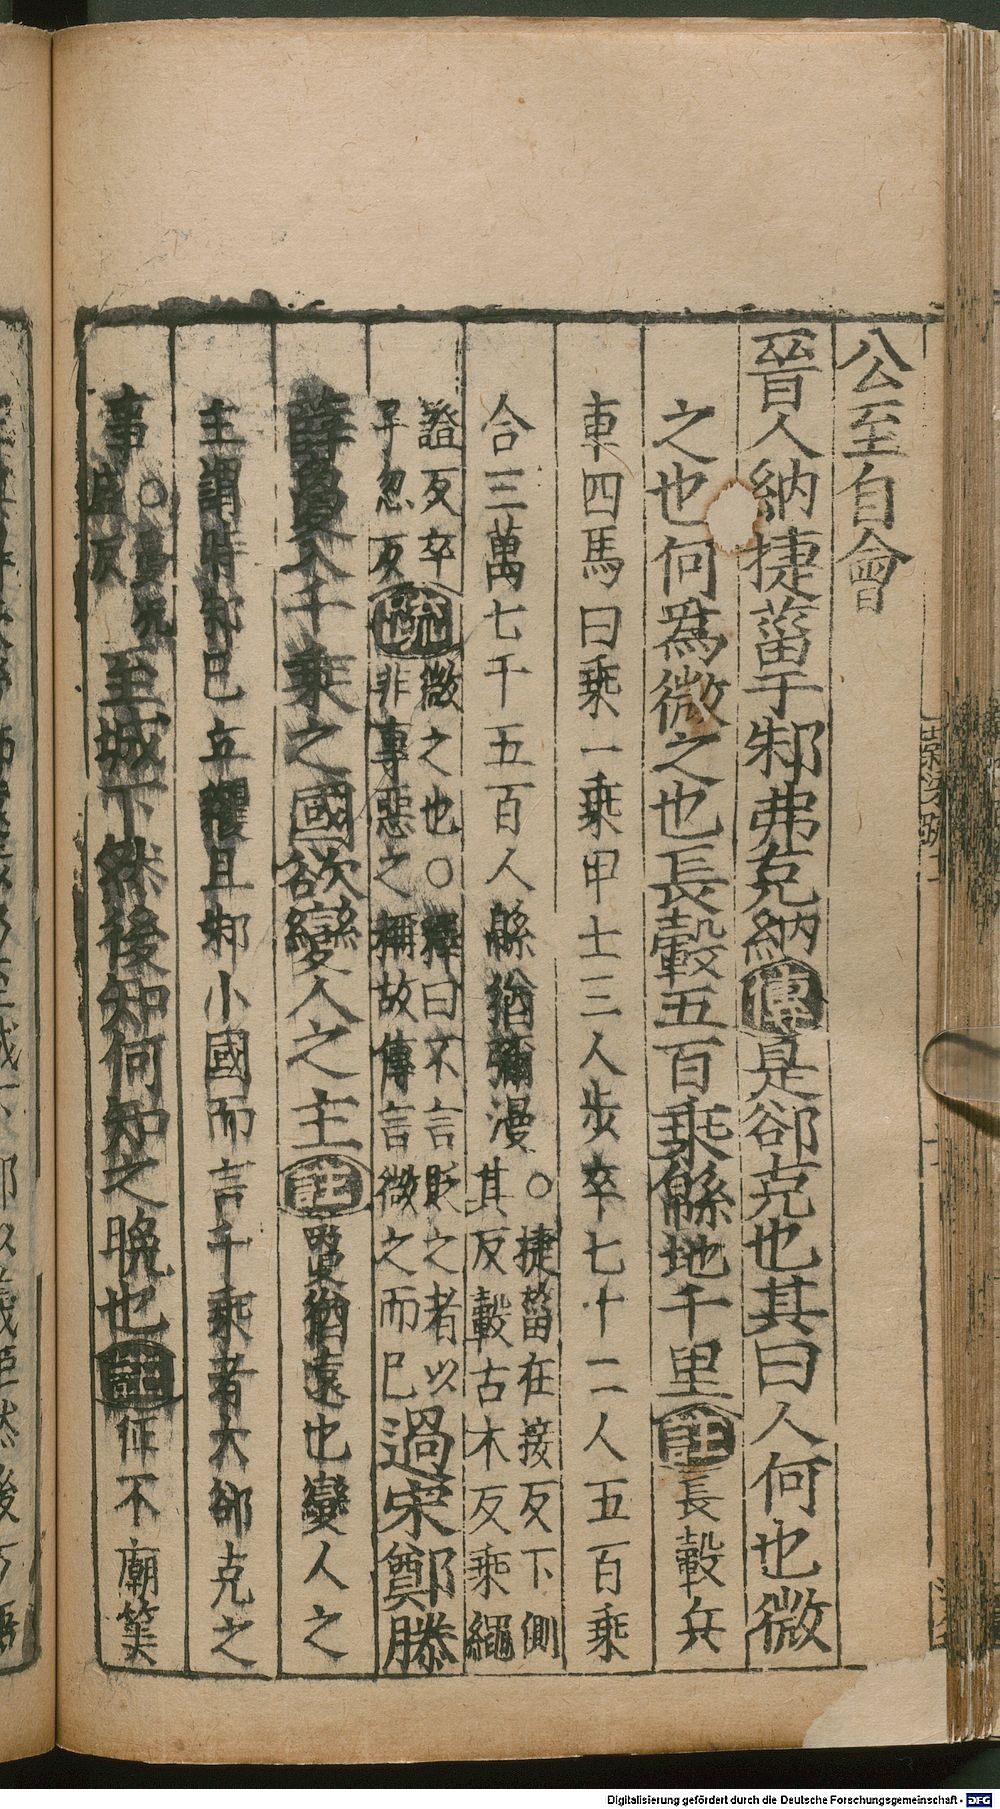 公至自會
晉人納捷菑于邾弗克納傳是郤克也其曰人何也微
之也何爲微之也長轂五百乘緜地千里註長轂兵
車四馬曰乘一乘甲士三人步卒七十二人五百乘
合三萬七千五百人緜猶彌漫○捷菑在接反下側
其反轂古木反乘繩
證反卒
子忽反疏微之也○釋曰不言貶之者以
非專惡之稱故傳言微之而已過宋鄭滕
薛敻入千乘之國欲變人之主註敻猶遠也變人之
主謂時邾已立貜且邾小國而言千乘者大郤克之
事○敻況
盛反至城下然後知何知之晚也註征不廟筭
Digitalisierung gefördert durch die Deutsche Forschungsgemeinschaft - DFG